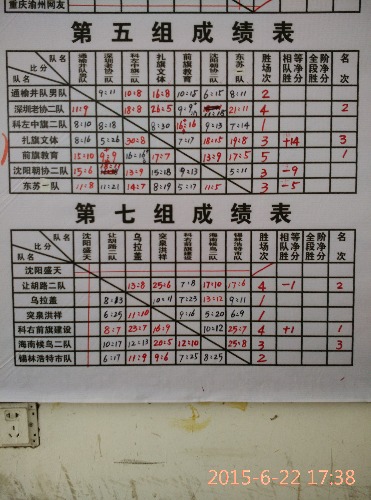 重庆渝州网友
第五组成绩表
队名 比分 队名 通榆井队男队 深圳老协二队 科左中旗二队 扎旗文体 前旗教育 沈阳朝协二队 东苏一队 胜场次 相等队净胜 全阶段净分 名次
通榆井队男队 9:11 10:8 16:8 10:15 6:15 8:11 2
深圳老协二队 11:9 18:8 26:5 21:11 4 2
科左中旗二队 8:10 8:18 8:30 16:16 9:13 7:14 1
扎旗文体 8:16 5:26 30:8 7:17 18:15 19:8 3 +14 3
前旗教育 15:10 9:9 16:16 17:7 13:9 17:5 5 1
沈阳朝协二队 15:6 13:9 15:18 9:13 5:11 3 -9
东苏一队 11:8 11:21 14:7 8:19 5:17 11:5 3 -5
第七组成绩表
队名 比分 队名 沈阳盛天 让胡路二队 乌拉盖 突泉洪祥 科右前旗建设 海南候鸟二队 锡林浩特市队 胜场次 相等队净胜 全阶段净分 名次
沈阳盛天
让胡路二队 13:8 25:6 7:8 17:10 17:6 4 -1 2
乌拉盖 8:13 10:11 7:23 13:12 9:11 1
突泉洪祥 6:25 11:10 9:16 5:20 6:9 1
科右前旗建设 8:7 23:7 16:9 10:12 25:7 4 +1 1
海南候鸟二队 10:17 12:13 20:5 12:10 25:8 3 3
锡林浩特市队 6:17 11:9 9:6 7:25 8:25 2
2015-6-22 17:38